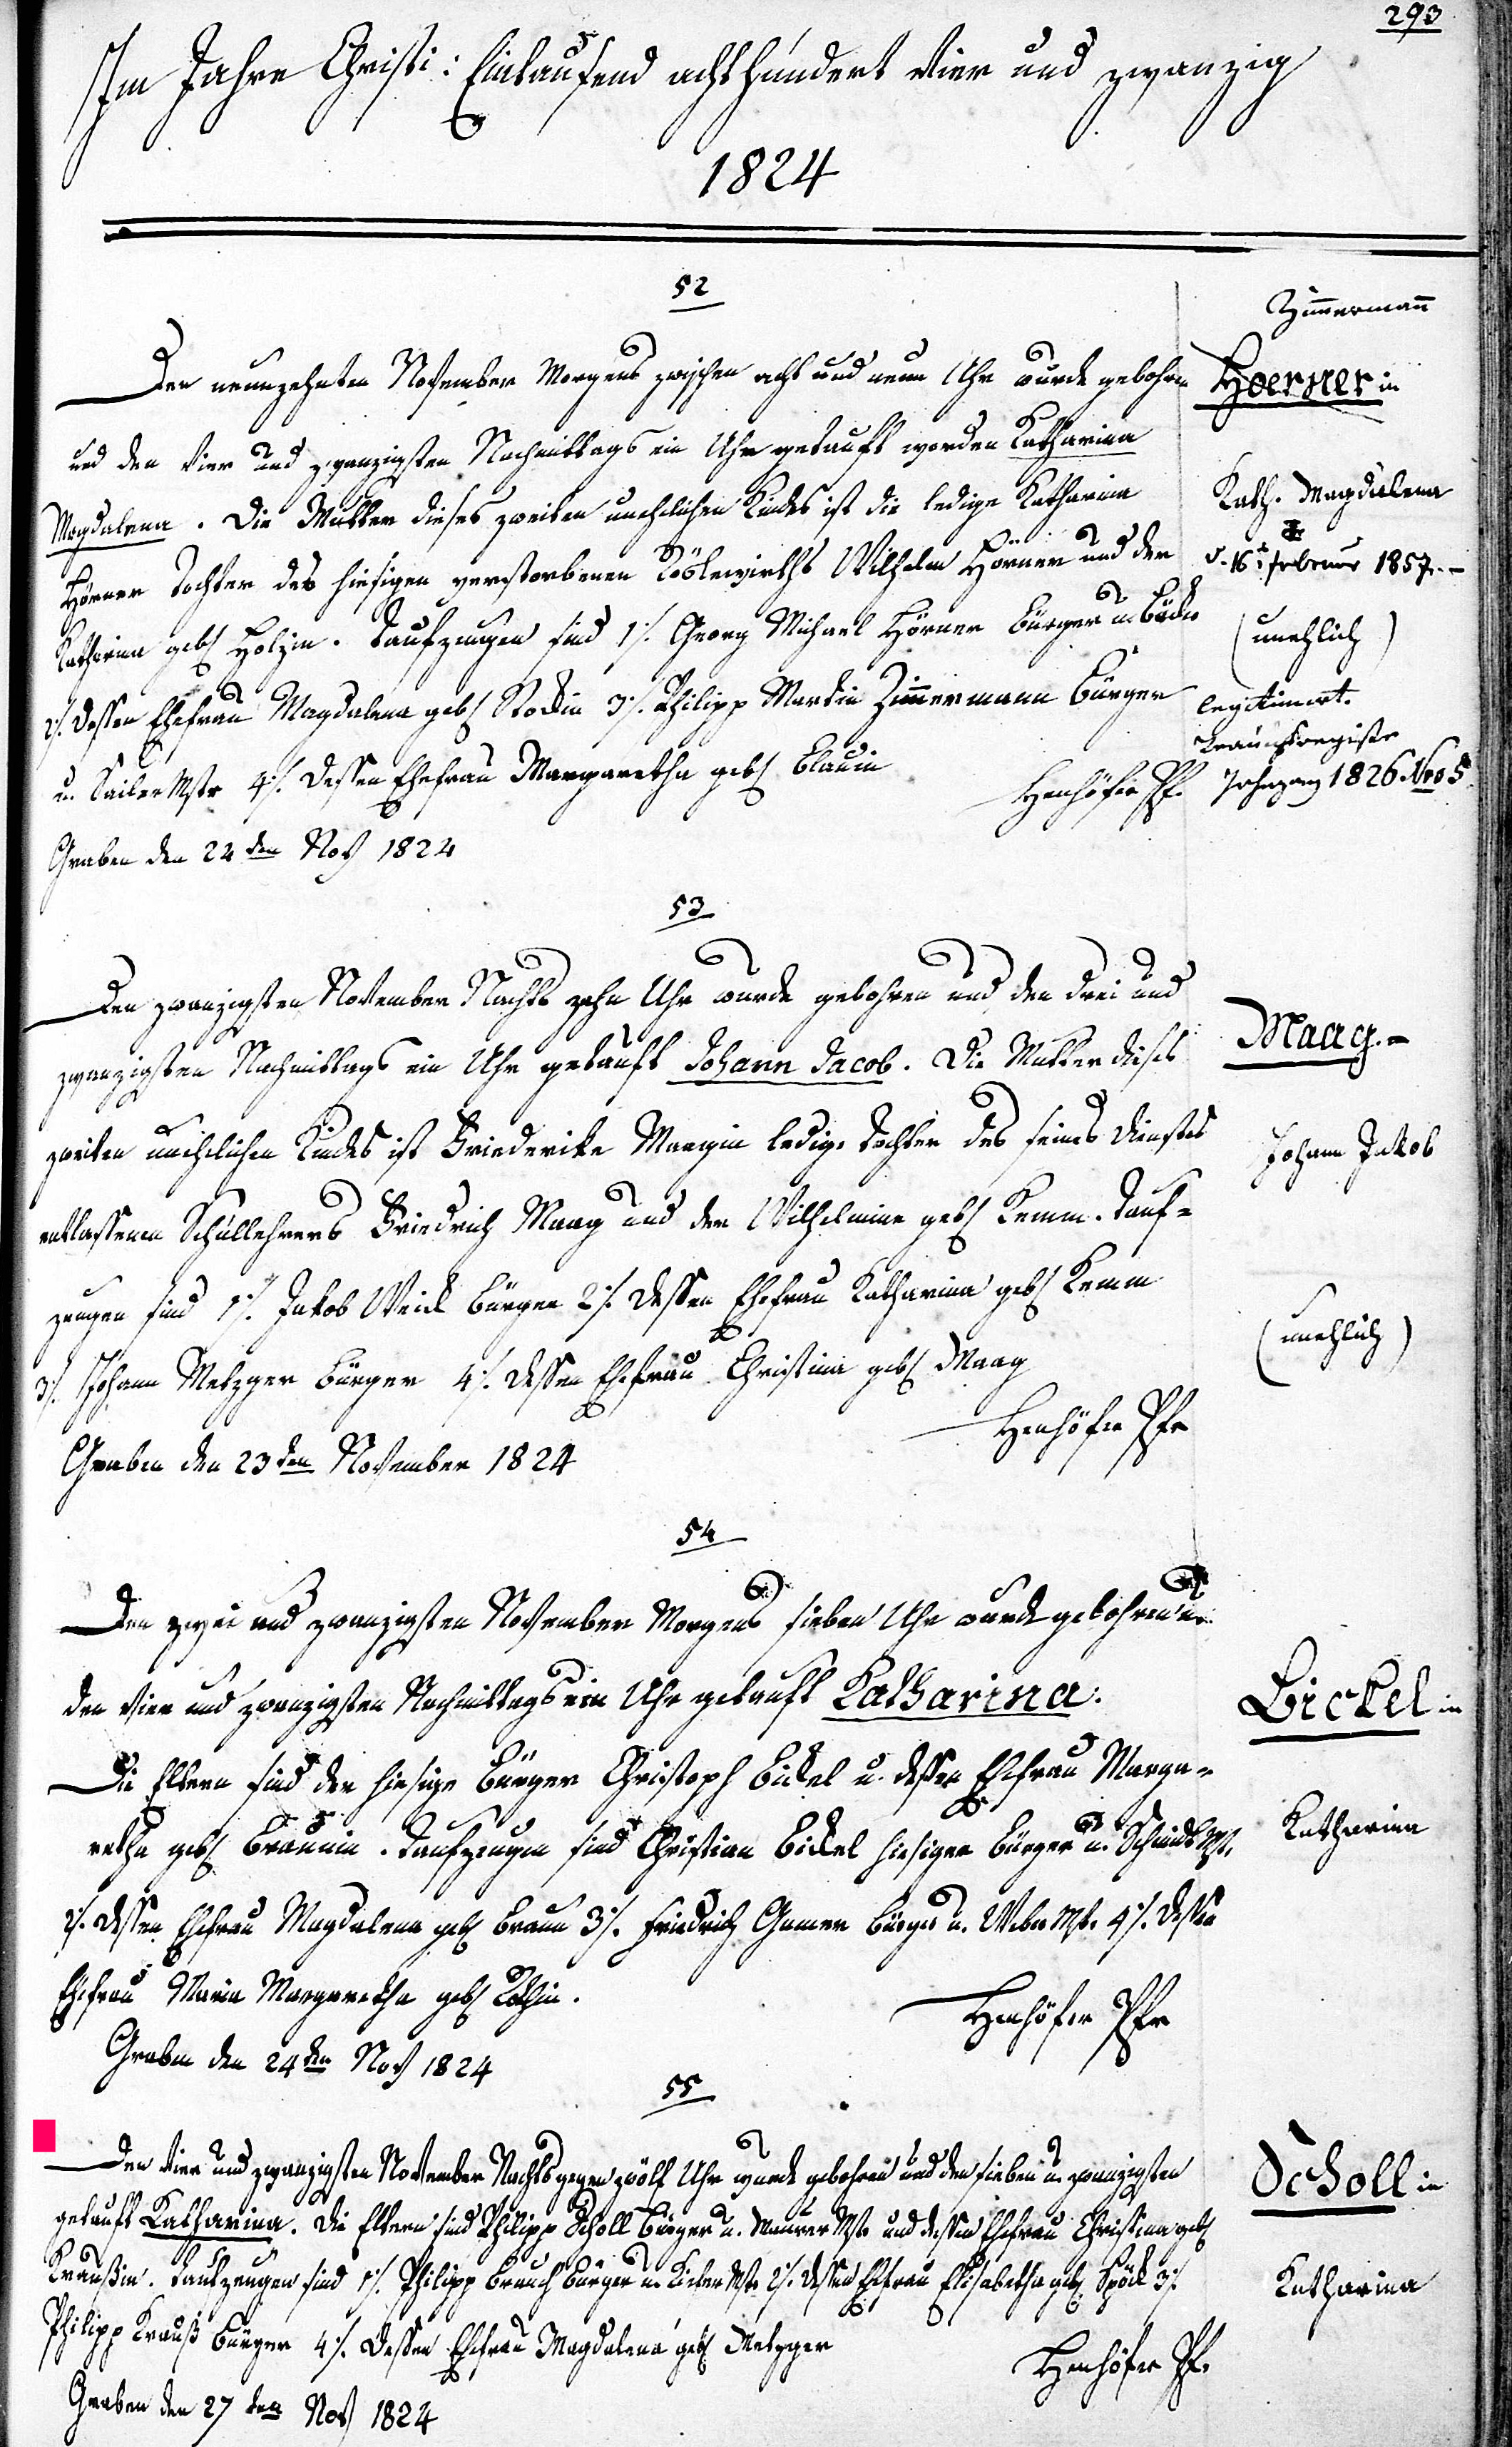 293
Im Jahre Christi: Eintausend achthundert vier und zwanzig
1824
52
Den neunzehnten November Morgens zwischen acht und neun Uhr wurde gebohren
und den vier und zwanzigsten Nachmittags ein Uhr getauft worden Katharina
Magdalena. Die Mutter dieses zweiten unehlichen Kindes ist die ledige Katharina
Hörner Tochter des hiesigen verstorbenen Wilhelm Hörner und der
Katharina geb. Holzin. Taufzeugen sind 1./. Georg Michael Hörner Bürger u. Bäcker
2./. Dessen Ehefrau Magdalena geb. 3./. Philipp Martin Zimmermann Bürger
u. Sailer Mstr 4./. Dessen Ehefrau Margaretha geb.
Henhöfer Pf.
Graben den 24ten Nov 1824
Zimmermann
Hoerner in
Kath. Magdalena
16t Februar 1857.-
(unehlich)
legitimirt.
Trauungsregister
Jahrgang 1826 Nro 5.
53
Den zwanzigsten November Nachts zehn Uhr wurde gebohren und den drei und
zwanzigsten Nachmittags ein Uhr getauft Johann Jacob. Die Mutter dieses
zweiten unehelichen Kindes ist Friederike Maagin ledige Tochter des seines Dienstes
entlassenen Schullehrers Friedrich Maag und der Wilhelmine geb. Kemm. Tauf-
zeugen sind 1./. Jakob Weick Bürger 2./. Dessen Ehefrau Katharina geb. Kemm
3./. Johann Metzger Bürger 4./. Dessen Ehefrau Christina geb. Maag
Henhöfer Pfr
Graben den 23ten November 1824
Maag.-
Johann Jakob
(unehlich)
54
Den zwei und zwanzigsten November Morgens sieben Uhr wurde gebohren u.
den vier und zwanzigsten Nachmittags ein Uhr getauft Katharina.
Die Eltern sind der hiesige Bürger Christoph Bickel u. dessen Ehefrau Marga-
retha geb. Braunin. Taufzeugen sind Christian Bickel hiesiger Bürger u. Schmidt Mst.
2./. Dessen Ehefrau Magdalena geb. Braun 3./. Friedrich Gamer Bürger u. Weber Mst. 4./. Dessen
Ehefrau Maria Margaretha geb.
Henhöfer Pfr
Graben den 24ten Nov 1824
Bickel in
Katharina
55
Den vier und zwanzigsten November Nachts gegen zwölf Uhr wurde gebohren und den sieben u. zwanzigsten
getauft Katharina. Die Eltern sind Philipp Scholl Bürger u. Maurer Mstr und dessen Ehefrau Christina geb.
Kraußin. Taufzeugen sind 1./. Philipp Bürger u. Mstr 2./. Dessen Ehefrau Elisabetha geb. Spöck 3./.
Philipp Krauß Bürger 4./. Dessen Ehefrau Magdalena geb. Metzger
Henhöfer Pf.
Graben den 27ten Nov 1824
Scholl in
Katharina